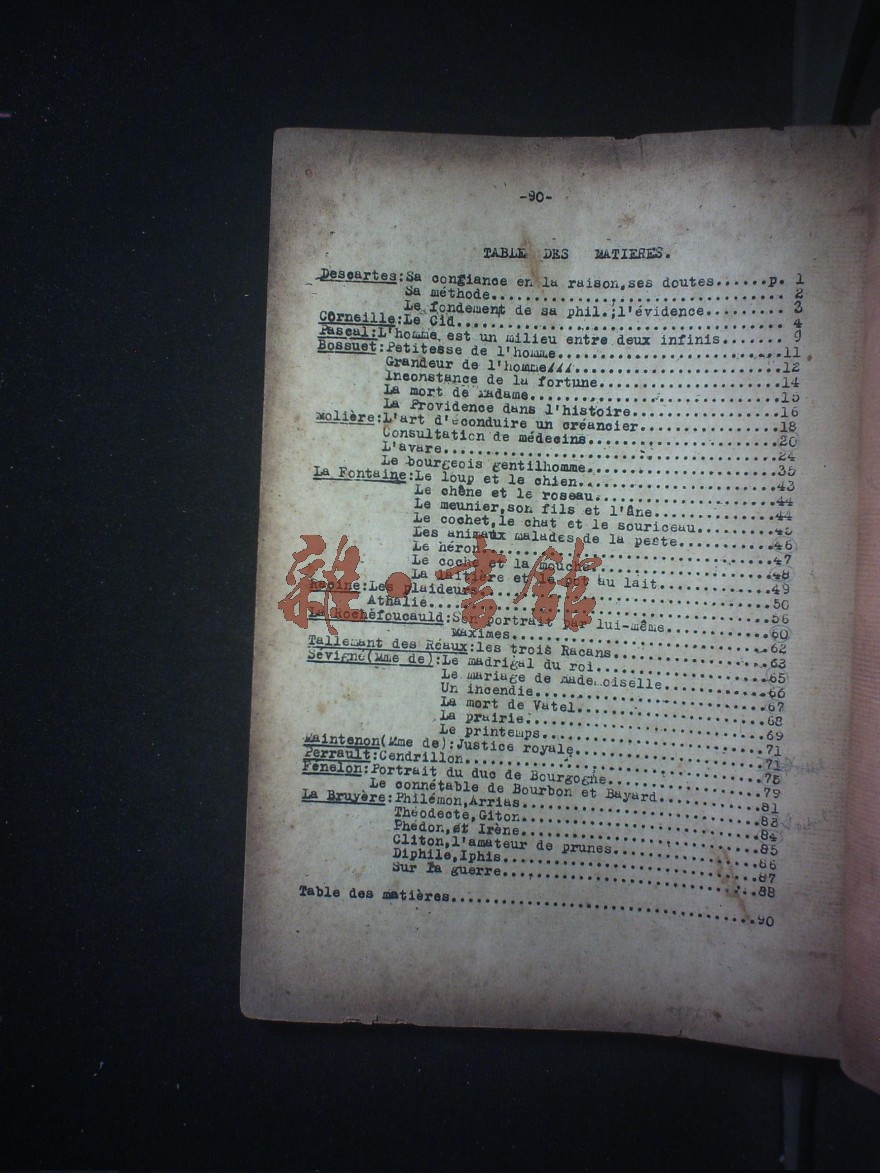 -90-
TABLE DES MATIERES.
Descartes:Sa confiance en la raison,ses doutes......p. 1
Sa méthode.............................. 2
Le fondement de sa phil.;l'évidence......... 3
Corneille:Le Cid.................................... 4
Pascal:L'homme est un milieu entre deux infinis....... 9
Bossuet:Petitesse de l'homme..........................11
Grandeur de l'homme///........................12
Inconstance de la fortune.....................14
La mort de Madame.............................15
La Providence dans l'histoire.................16
Molière:L'art d'éconduire un créancier................18
Consultation de médecins......................20
L'avare.......................................24
Le bourgeois gentilhomme......................35
La Fontaine:Le loup et le chien.......................43
Le chêne et le roseau.....................44
Le meunier,son fils et l'âne..............44
Le cochet,le chat et le souriceau.........45
Les animaux malades de la peste...........46
Le héron..................................47
Le coche et la mouche.....................48
La laitière et le pot au lait.............49
Racine:Les plaideurs..................................50
Athalie........................................56
La Rochefoucauld:Son portrait par lui-même............60
Maximes..............................62
Tallemant des Réaux:les trois Racans..................63
Sévigné(Mme de):Le madrigal du roi....................65
Le mariage de mademoiselle............66
Un incendie...........................67
La mort de Vatel......................68
La prairie............................69
Le printemps..........................71
Maintenon(Mme de):Justice royale......................71
Perrault:Cendrillon...................................75
Fénelon:Portrait du duc de Bourgogne..................79
Le connétable de Bourbon et Bayard............81
La Bruyère:Philémon,Arrias............................83
Théodecte,Giton............................84
Phédon,et Irène............................85
Cliton,l'amateur de prunes.................86
Diphile,Iphis..............................87
Sur la guerre..............................88
Table des matières....................................90
雜·書館